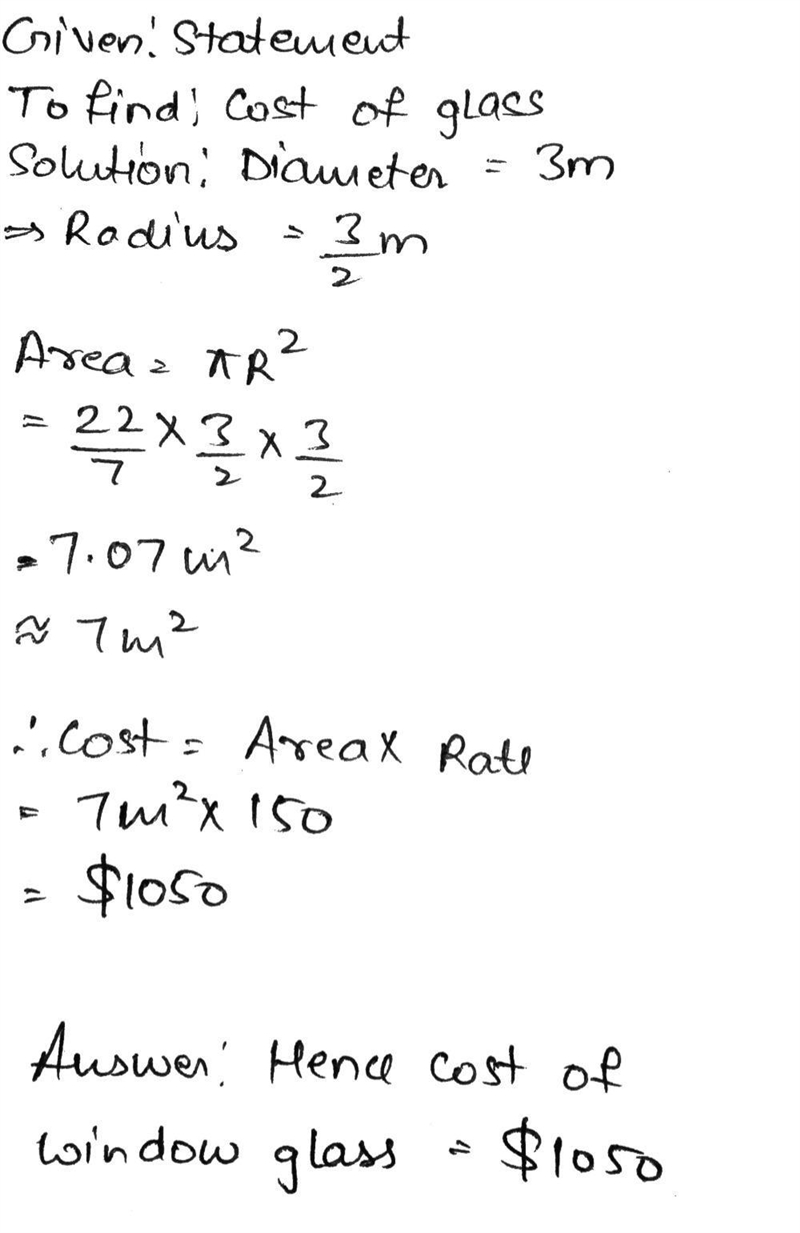 Given: Statement
To find: Cost of glass
Solution: Diameter = 3m
⇒ Radius = 3/2 m
Area = πR²
= 22/7 × 3/2 × 3/2
= 7.07 m²
≈ 7m²
∴ Cost = Area × Rate
= 7m² × 150
= $1050
Answer: Hence cost of
window glass = $1050